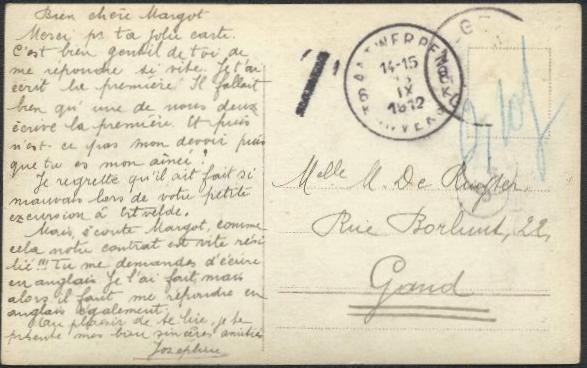 Bien chère Margot
Merci pr ta jolie carte.
C'est bien gentil de toi de
me répondre si vite. Je t'ai
écrit la première. Il fallait
bien qu'une de nous deux
écrive la première. Et puis
n'est-ce pas mon devoir puis
que tu es mon aînée?
Je regrette qu'il ait fait si
mauvais lors de votre petite
excursion à
Mais, écoute Margot, comme
cela notre contrat est vite rési
lié!!! Tu me demandes d'écrire
en anglais. Je l'ai fait, mais
alors il faut me répondre en
anglais également.
Au plaisir de te lire, je te
présente mes bien sincères amitiés
Josephine
T
ANTWERPEN 6
14-15
IX
1912
ANVERS
Melle M. De Ruyter.
Rue Borluut, 22,
Gand